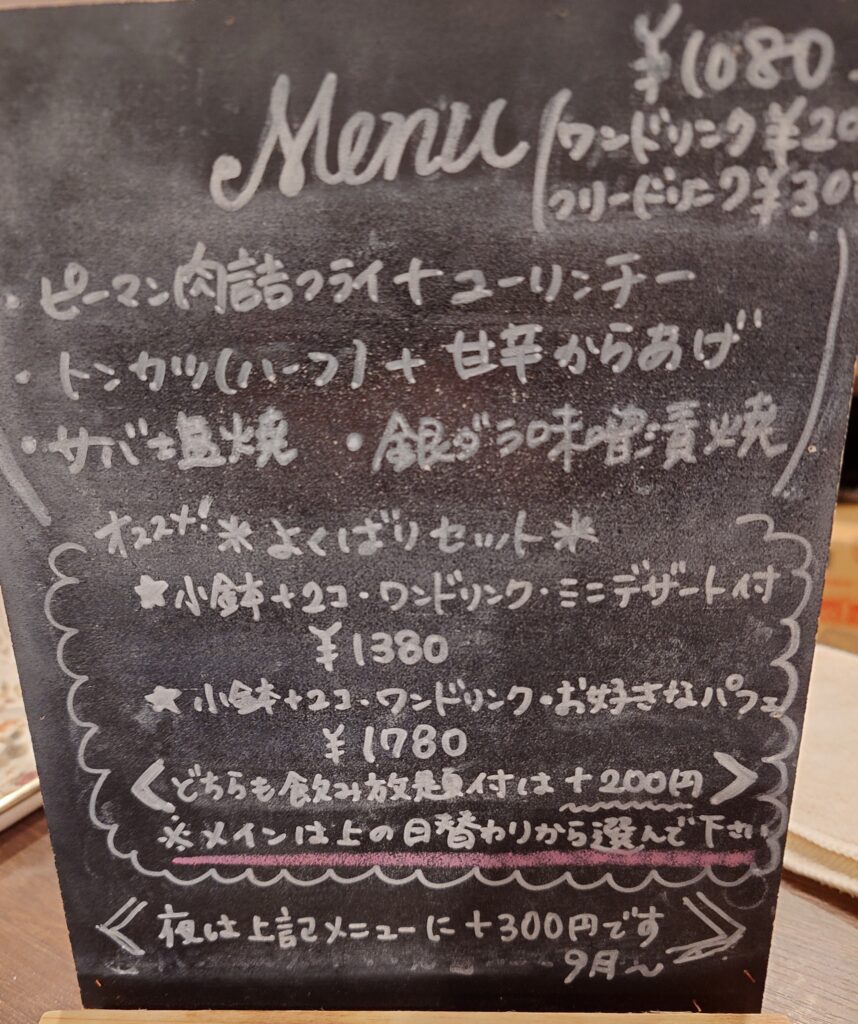 ¥1080
Menu
ワンドリンク ¥20
フリードリンク ¥30
・ピーマン肉詰フライ+ユーリンチー
・トンカツ(ハーフ)+甘辛からあげ
・サバ塩焼 ・銀ダラ味噌漬焼
オススメ!＊よくばりセット＊
★小鉢+2コ・ワンドリンク・ミニデザート付
¥1380
★小鉢+2コ・ワンドリンク・お好きなパフェ
¥1780
<どちらも飲み放題付は+200円>
※メインは上の日替わりから選んで下さい
≪夜は上記メニューに+300円です≫
9月〜